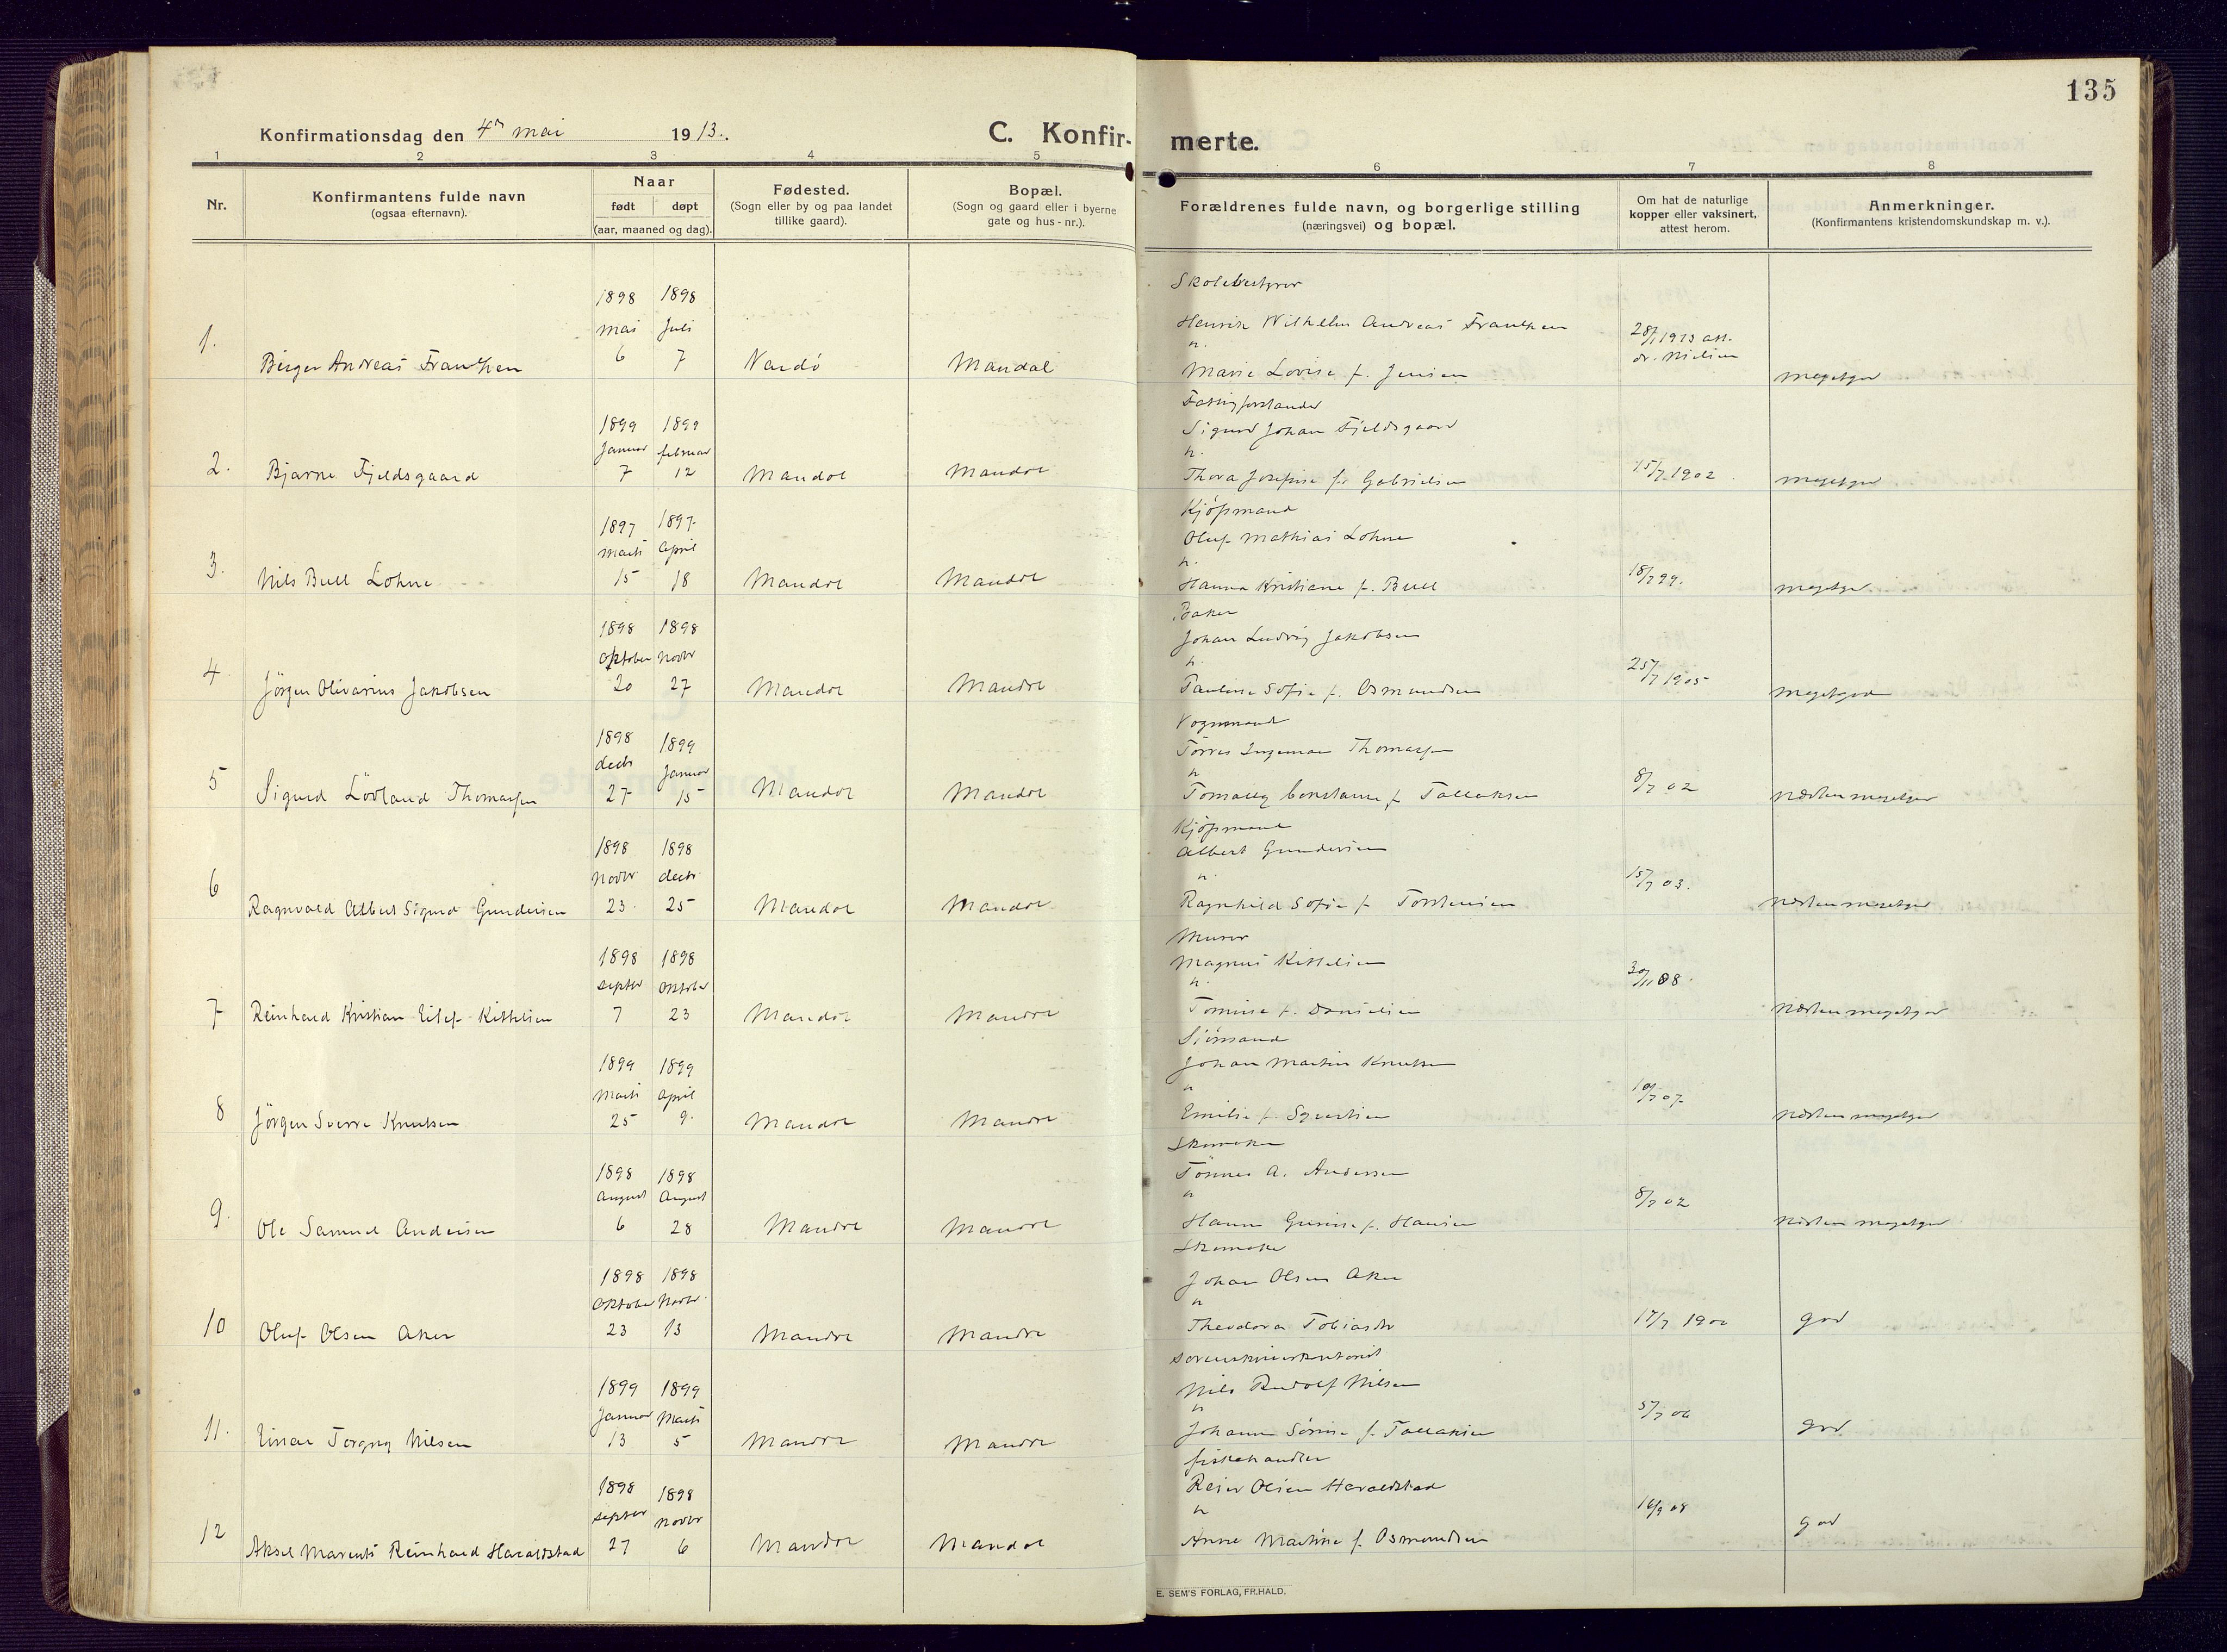 135
Konfirmationsdag den 4de mai 1913.
C. Konfir-
merte.
1 2 3 4 5 6 7 8
Nr.
Konfirmantens fulde navn
(ogsaa efternavn).
Naar
født døpt
(aar, maaned og dag).
Fødested.
(Sogn eller by og paa landet
tillike gaard).
Bopæl.
(Sogn og gaard eller i byerne
gate og hus-nr.).
Forældrenes fulde navn, og borgerlige stilling
(næringsvei) og bopæl.
Om hat de naturlige
kopper eller vaksinert,
attest herom.
Anmerkninger.
(Konfirmantens kristendomskundskap m. v.).
Skolebestyrer
1898 1898
mai Juli
Henrik Wilhelm Andreas Frantzen
1. Birger Andreas Frantzen 6 7 Vardö Mandal
Marie Lovise f. Jensen
28/1 1913 att.
dr. Nielsen
megetgod
Fattigforstander
1899 1899
Januar februar
Sigurd Johan Fjeldsgaard
2. Bjarne Fjeldsgaard 7 12 Mandal Mandal
Thora Josefine f. Gabrielsen
15/7 1902
megetgod
Kjöpmand
1897 1897
marts April
Oluf Mathias Lohne
3. Nils Bull Lohne 15 18 Mandal Mandal
Hanna Kristiane f. Bull
18/7 99.
megetgod
Baker
1898 1898
Oktober Novbr
Johan Ludvig Jakobsen
4 Jörgen Olivarius Jakobsen 20 27 Mandal Mandal
Pauline Sofie f. Osmundsen
25/7 1905
megetgod
Vognmand
1898 1899
decbr Januar
Törres Ingeman Thomassen
5 Sigurd Lövland Thomassen 27 15 Mandal Mandal
Constanse f. Tallaksen
8/7 02
næsten megetgod
Kjöpmand
1898 1898
Novbr decbr
Albert Gundersen
6 Ragnvald Albert Sigurd Gundersen 23 25 Mandal Mandal
Ragnhild Sofie f. Torstensen
15/7 03.
næsten megetgod
Murer
1898 1898
septbr Oktober
Magnus Kittelsen
7 Reinhard Kristian Eilef Kittelsen 7 23 Mandal Mandal
Tomine f. Danielsen
30/11 08.
næsten megetgod
Sjömand
1899 1899
Marts April
Johan Martin Knutsen
8 Jörgen Sverre Knutsen 25 9 Mandal Mandal
Emilie f.
10/7 07
næsten megetgod
Skomaker
1898 1898
August August
Tönnes A. Andersen
9. Ole Samuel Andersen 6 28 Mandal Mandal
f. Hansen
8/7 02
næsten megetgod
Skomaker
1898 1898
Oktober Novbr.
Johan Olsen Aker
10 Oluf Olsen Aker 23 13 Mandal Mandal
Theodora Tobiasdtr
17/7 1900
god
1899 1899
Januar Marts
Nils Rudolf Nilsen
11. Einar Torgny Nilsen 13 5 Mandal Mandal
Johanne Sörine f. Tallaksen
5/7 06
god
fiskehandler
1898 1898
septbr novbr
Reier Olsen Haraldstad
12 Aksel Marenti Reinhard Haraldstad 27 6 Mandal Mandal
Anne Martine f. Osmundsen
16/9 08
god
E. SEM'S FORLAG, FR.HALD.